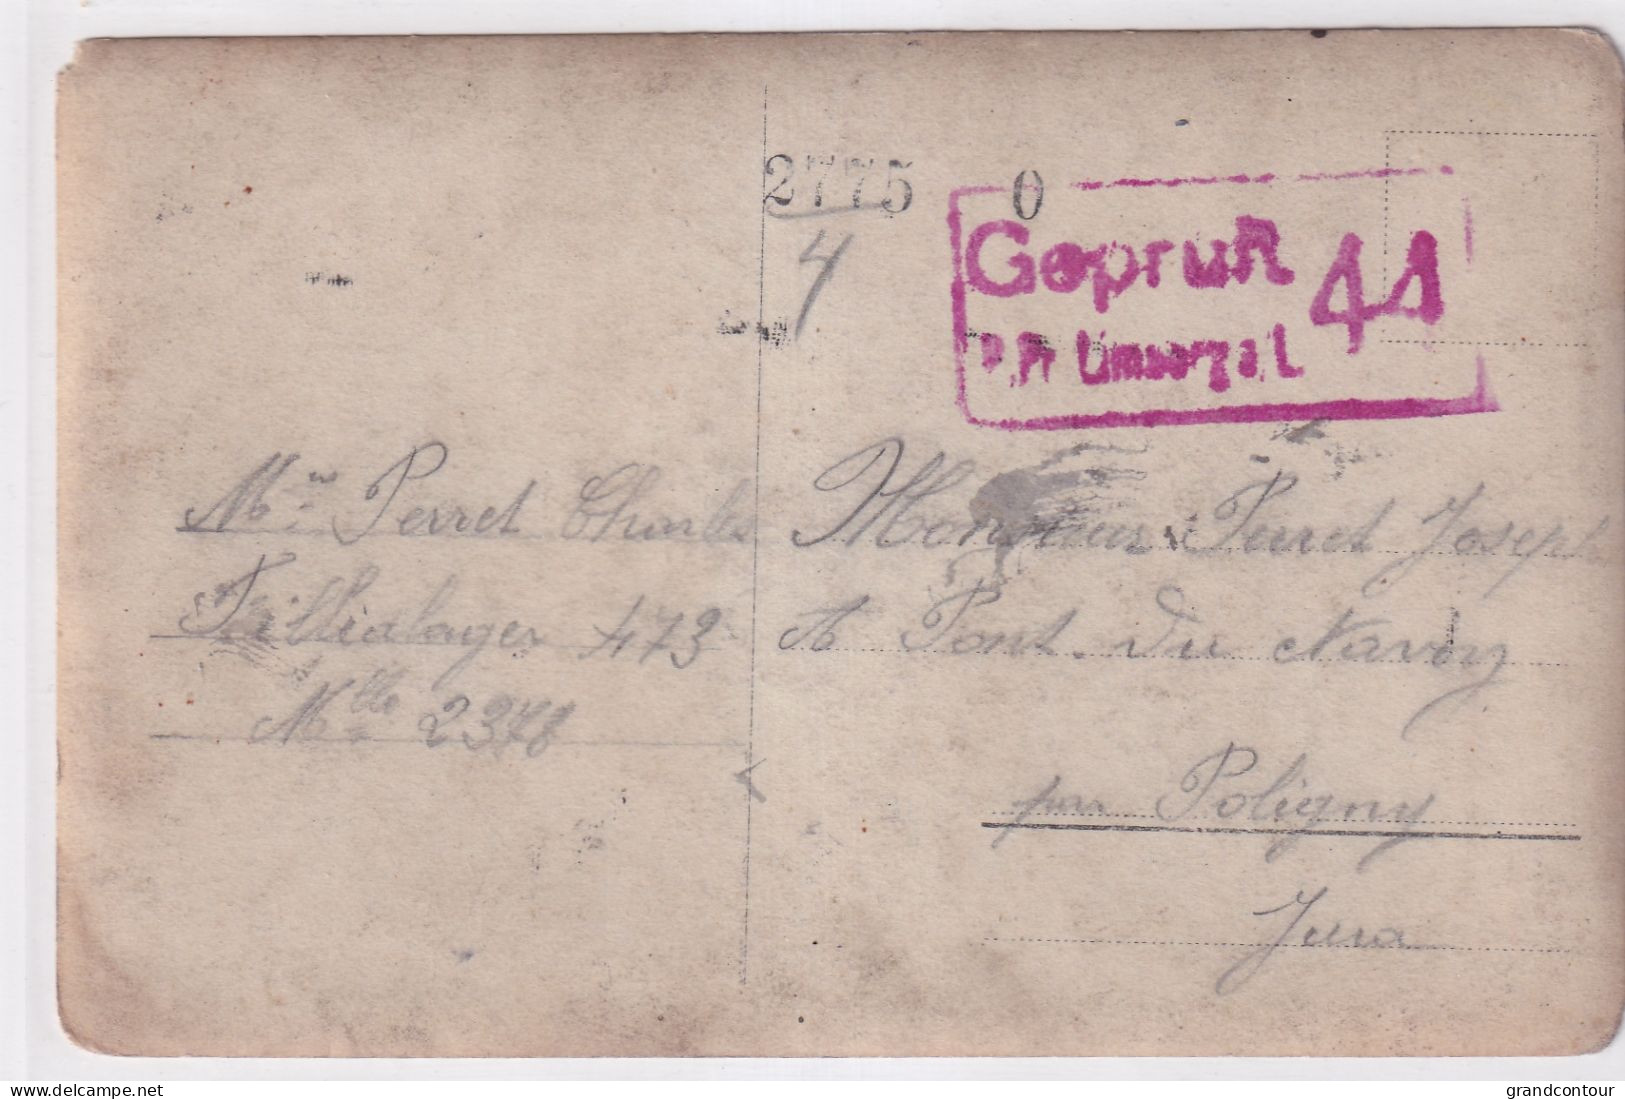 2775 0
4
Geprüft 44
P.Pr Limburg a. L
Mr Perret Charles
Fillialager 473
Mlle 2378
Monsieur Perret Joseph
A Pont. du Navoy
par Poligny
Jura
www.delcampe.net
grandcontour